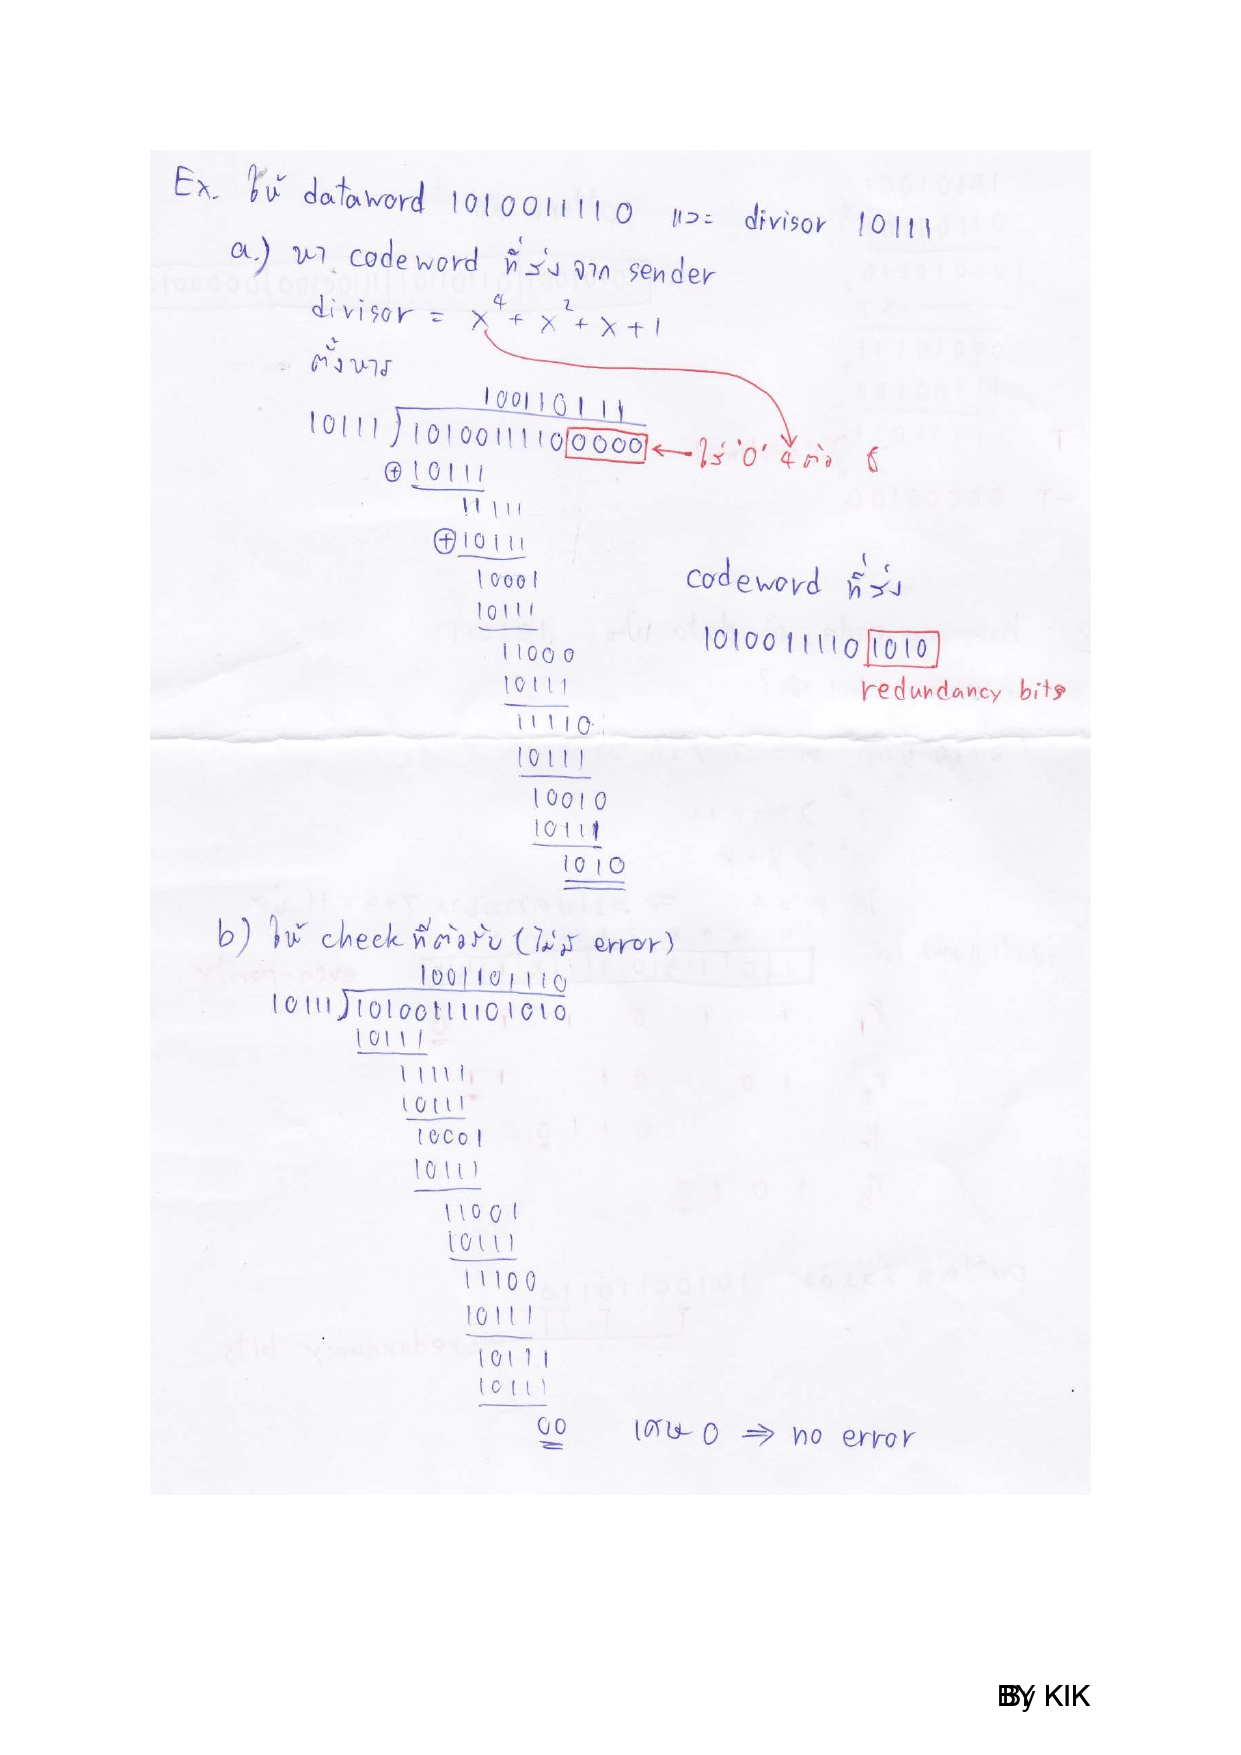 Ex. ให้ dataword 1010011110 และ divisor 10111
a.) หา codeword ที่ส่งจาก sender
divisor = x⁴ + x² + x + 1
ตั้งหาร
100110111
10111 ) 1010011110 0000 ← ใส่ '0' 4 ตัว
⊕ 10111
11111
⊕ 10111
10001
10111
11000
10111
11110
10111
10010
10111
1010
codeword ที่ส่ง
1010011110 1010
redundancy bits
b) ให้ check ที่ตัวรับ (ไม่มี error)
1001101110
10111 ) 10100111101010
10111
11111
10111
10001
10111
11001
10111
11100
10111
10111
10111
00 เศษ 0 ⇒ no error
BY KIK